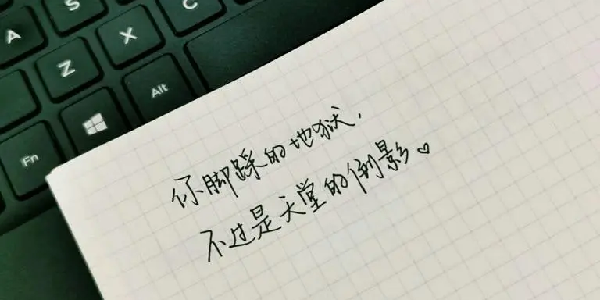 A
S
Z
X
C
Alt
Fn
你脚踩的地狱，
不过是天堂的倒影。